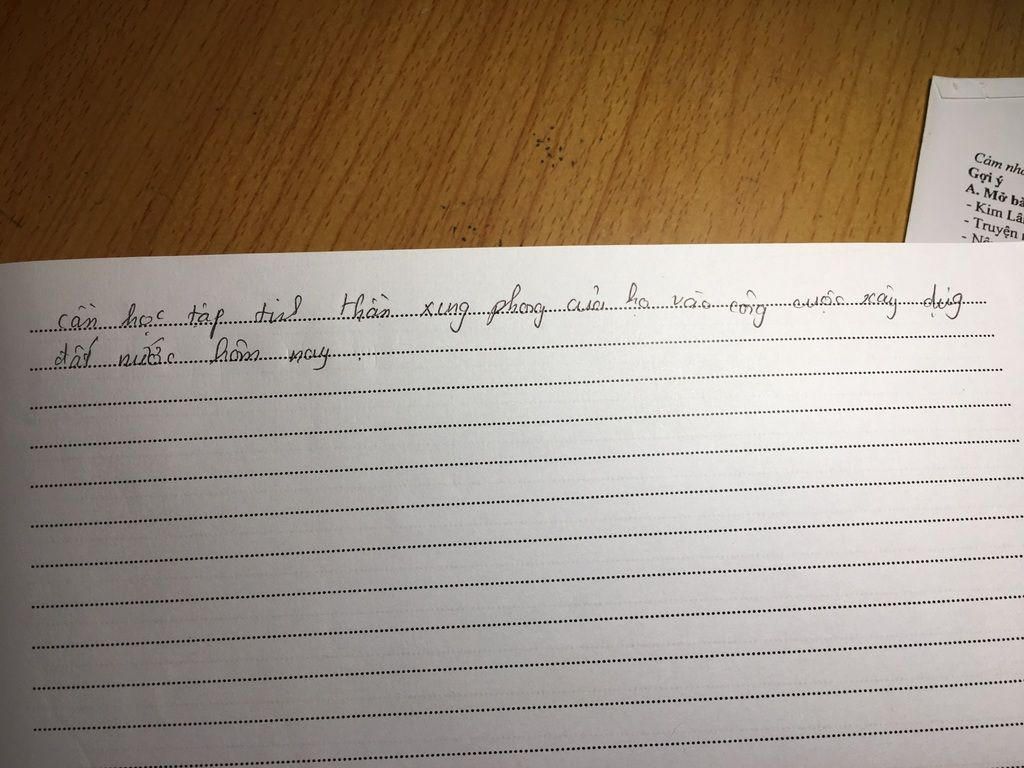 Cảm nh
Gợi ý
A. Mở bà
- Kim Lâ
- Truyện
cần học tập tinh thần xung phong của họ vào công cuộc xây dựng
đất nước hôm nay.